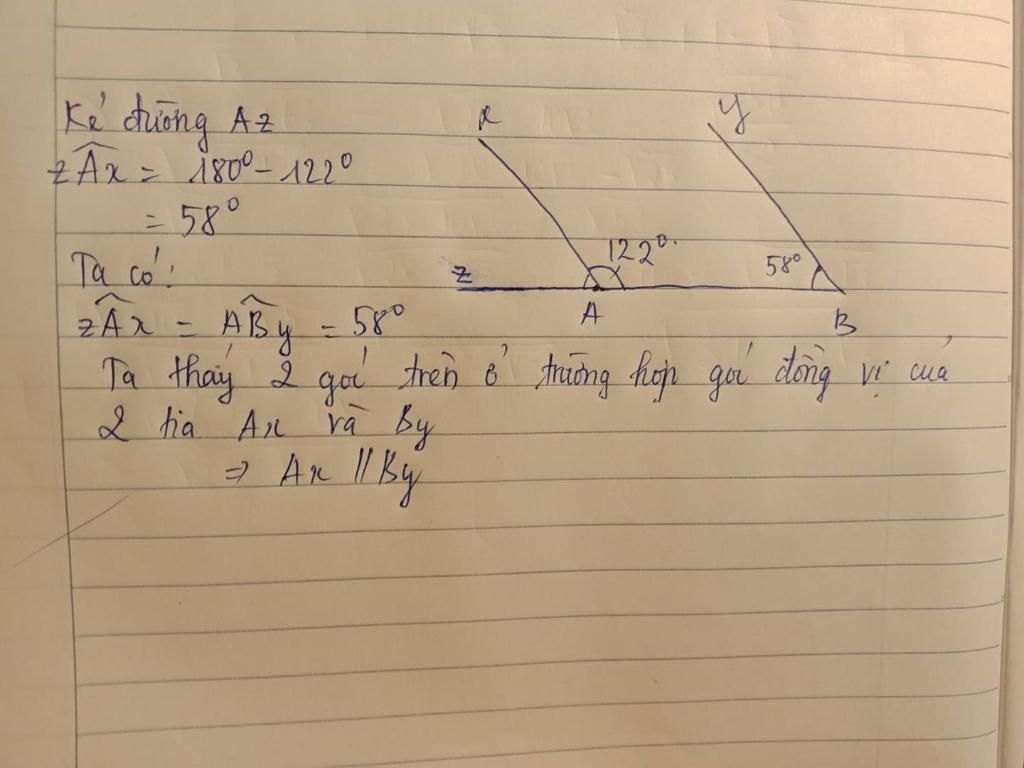 Kẻ đường Az
zÂx = 180° - 122°
= 58°
Ta có:
zÂx = AB̂y = 58°
Ta thấy 2 goí trên ở trường hợp goí đồng vị của
2 tia Ax và By
=> Ax // By
x
y
122°
58°
z
A
B